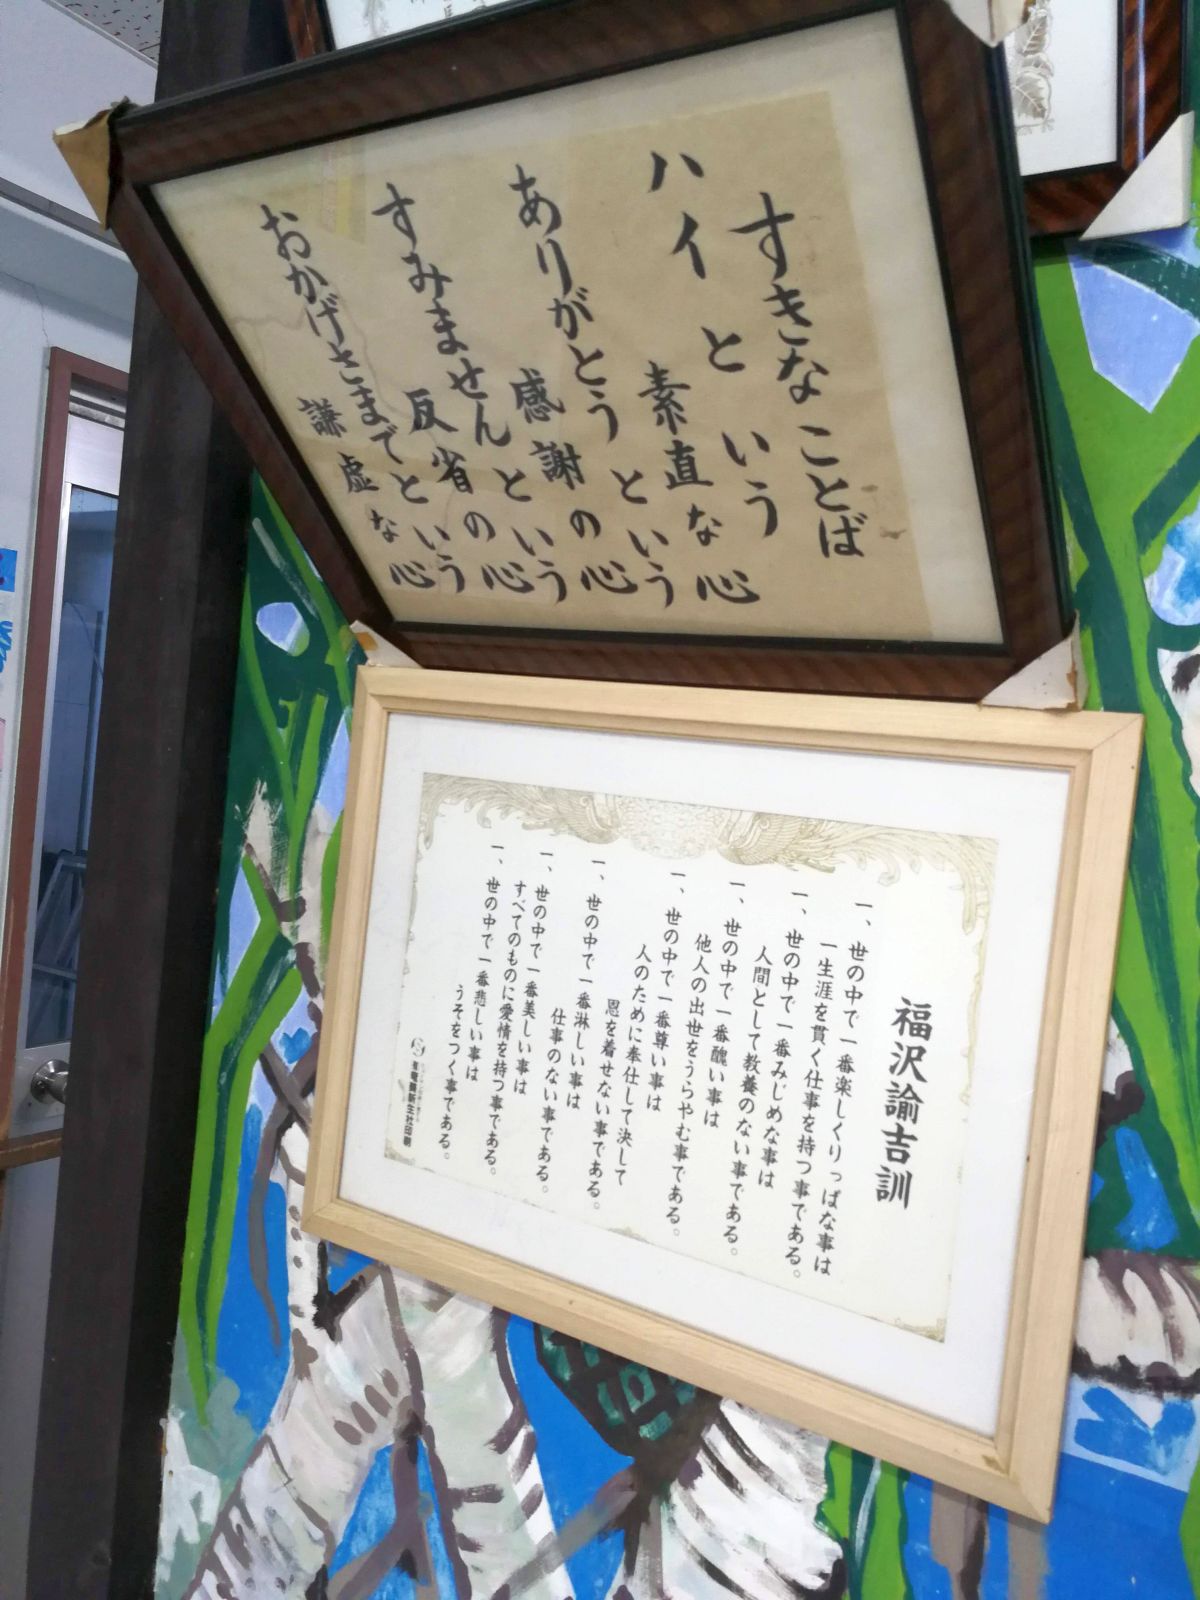 すきなことば
ハイという
素直な心
ありがとうという
感謝の心
すみませんという
反省の心
おかげさまでという
謙虚な心
福沢諭吉訓
一、世の中で一番楽しくりっぱな事は
一生涯を貫く仕事を持つ事である。
一、世の中で一番みじめな事は
人間として教養のない事である。
一、世の中で一番醜い事は
他人の出世をうらやむ事である。
一、世の中で一番尊い事は
人のために奉仕して決して
恩を着せない事である。
一、世の中で一番淋しい事は
仕事のない事である。
一、世の中で一番美しい事は
すべてのものに愛情を持つ事である。
一、世の中で一番悲しい事は
うそをつく事である。